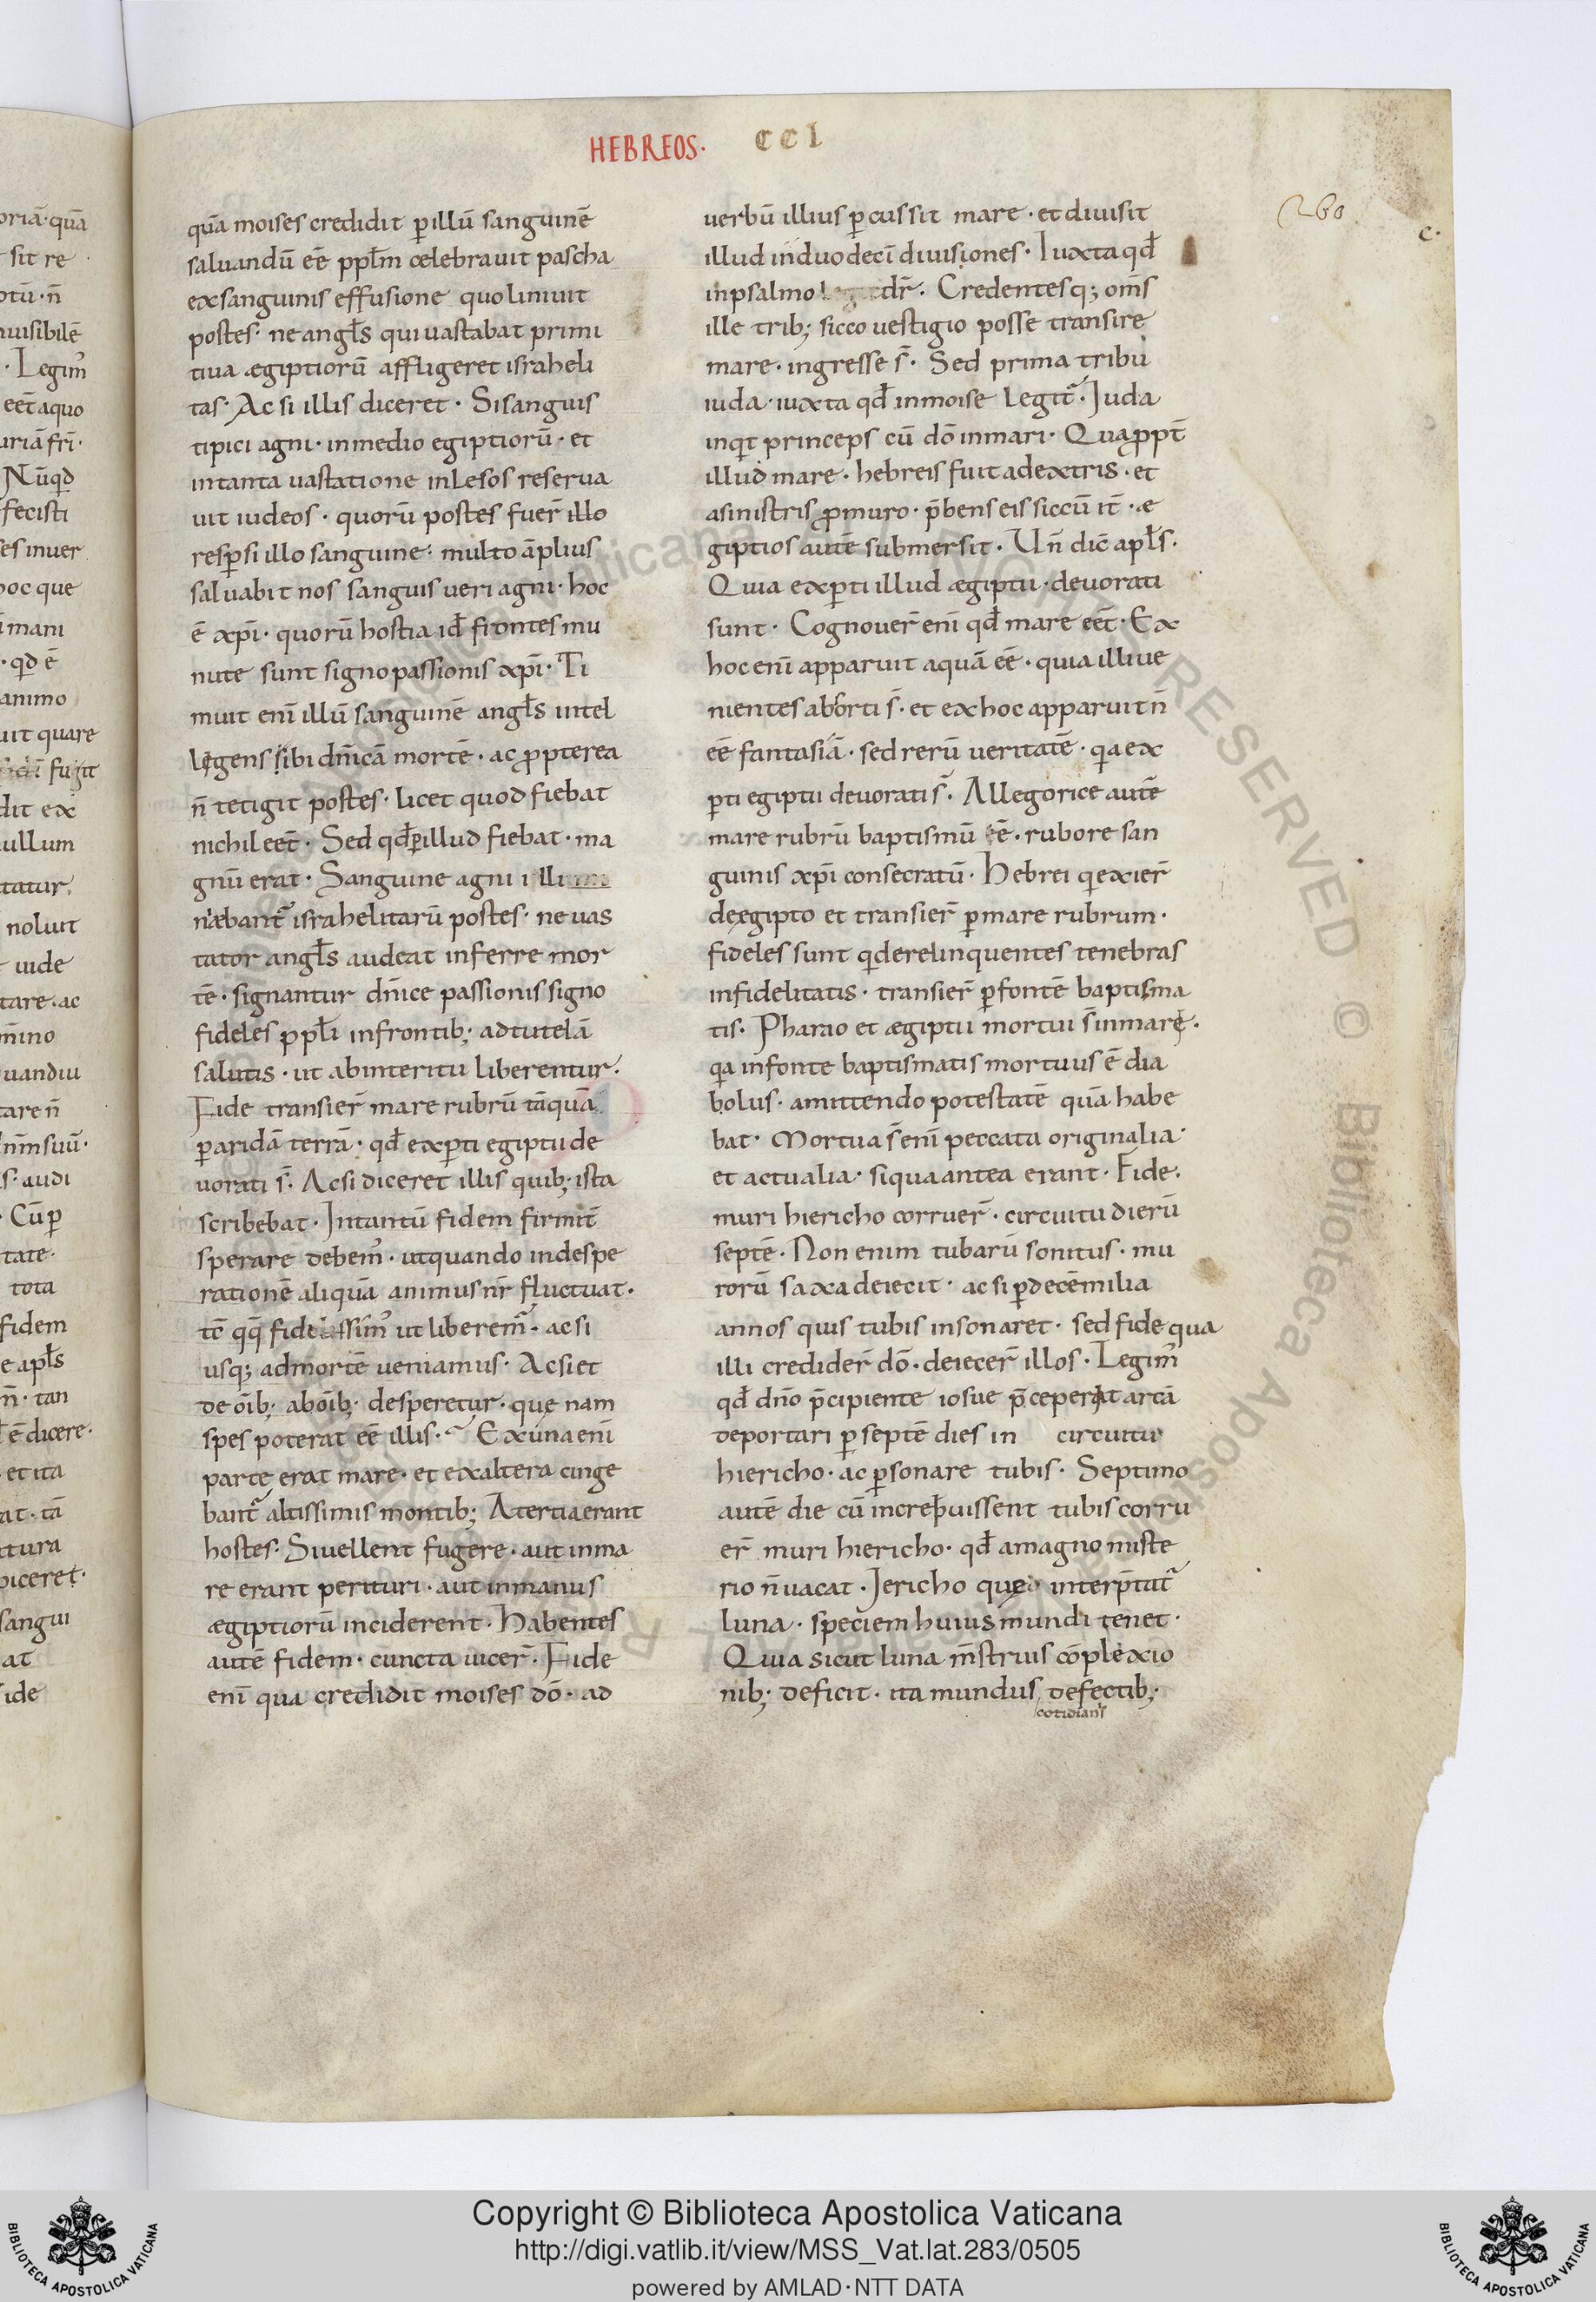 HEBREOS· CCL
260
c·
quā moises credidit p illū sanguinē
saluandū eē pplm celebrauit pascha
ex sanguinis effusione quo liniuit
postes· ne angls qui uastabat primi
tiua ægiptiorū affligeret israheli
tas· Ac si illis diceret· Si sanguis
tipici agni· in medio egiptiorū· et
in tanta uastatione inlesos reserua
uit iudeos· quorū postes fuer̄ illo
respsi illo sanguine· multo āplius
saluabit nos sanguis ueri agni· hoc
ē xp̄i· quorū hostia id frontes mu
nite sunt signo passionis xp̄i· Ti
muit enī illū sanguinē angls intel
legens sibi dn̄icā mortē· ac ppterea
n̄ tetigit postes· licet quod fiebat
nichil eēt· Sed qd p illud fiebat· ma
gnū erat· Sanguine agni illi
niebant̄ israhelitarū postes· ne uas
tator angls audeat inferre mor
tē· signantur dn̄ice passionis signo
fideles ppli in frontib; ad tutelā
salutis· ut ab interitu liberentur·
Fide transier̄ mare rubrū tāquā
p aridā terrā· qd expti egiptii de
uorati s̄· Ac si diceret illis quib; ista
scribebat· Intantū fidem firmit̄
sperare debem᾽· ut quando in despe
rationē aliquā animus nr̄ fluctuat·
tē qq̄ fidentissim᾽ ut liberem᾽· ac si
usq; ad mortē ueniamus· Ac si et
de oīb; ab oīb; desperetur· que nam
spes poterat eē illis· Ex una enī
parte erat mare· et ex altera cinge
bant̄ altissimis montib; A tertia erant
hostes· Si uellent fugere· aut in ma
re erant perituri· aut in manus
ægiptiorū inciderent· Habentes
autē fidem· cuncta uicer̄· Fide
enī qua credidit moises dō· ad
uerbū illius pcussit mare· et diuisit
illud in duodecī diuisiones· Iuxta qd
in psalmo dr̄· Credentesq; om̄s
ille trib; sicco uestigio posse transire
mare· ingresse s̄· Sed prima tribu
iuda· iuxta qd in moise legit̄· Iuda
inqt princeps cū dō in mari· Quappt̄
illud mare· hebreis fuit a dextris· et
a sinistris p muro· p̄bens eis siccū it̄· æ
giptios autē submersit· Un̄ dic̄ apls·
Quia expti illud ægiptii· deuorati
sunt· Cognouer̄ enī qd mare eēt· Ex
hoc enī apparuit aquā eē· quia illi ue
nientes aborti s̄· et ex hoc apparuit n̄
eē fantasiā· sed rerū ueritatē· qa ex
pti egiptii deuorati s̄· Allegorice autē
mare rubrū baptismū ē· rubore san
guinis xp̄i consecratū· Hebrei q exier̄
de egipto et transier̄ p mare rubrum·
fideles sunt q derelinquentes tenebras
infidelitatis· transier̄ p fontē baptisma
tis· Pharao et ægiptii mortui s̄ in mare·
qa in fonte baptismatis mortuus ē dia
bolus· amittendo potestatē quā habe
bat· Mortua s̄ enī peccata originalia·
et actualia· si qua antea erant· Fide·
muri hiericho corruer̄· circuitu dierū
septē· Non enim tubarū sonitus· mu
rorū saxa deiecit· ac si p decē milia
annos quis tubis insonaret· sed fide qua
illi credider̄ dō· deiecer̄ illos· Legim᾽
qd dn̄o p̄cipiente iosue p̄ceperat arcā
deportari p septē dies in circuitu
hiericho· ac psonare tubis· Septimo
autē die cū increpuissent tubis corru
er̄ muri hiericho· qd a magno miste
rio n̄ uacat· Iericho que interp̄tat̄
luna· speciem huius mundi tenet·
Quia sicut luna m̄struis cōplexio
nib; deficit· ita mundus defectib;·
cotidianis
Copyright © Biblioteca Apostolica Vaticana
http://digi.vatlib.it/view/MSS_Vat.lat.283/0505
powered by AMLAD·NTT DATA
BIBLIOTECA APOSTOLICA VATICANA
BIBLIOTECA APOSTOLICA VATICANA